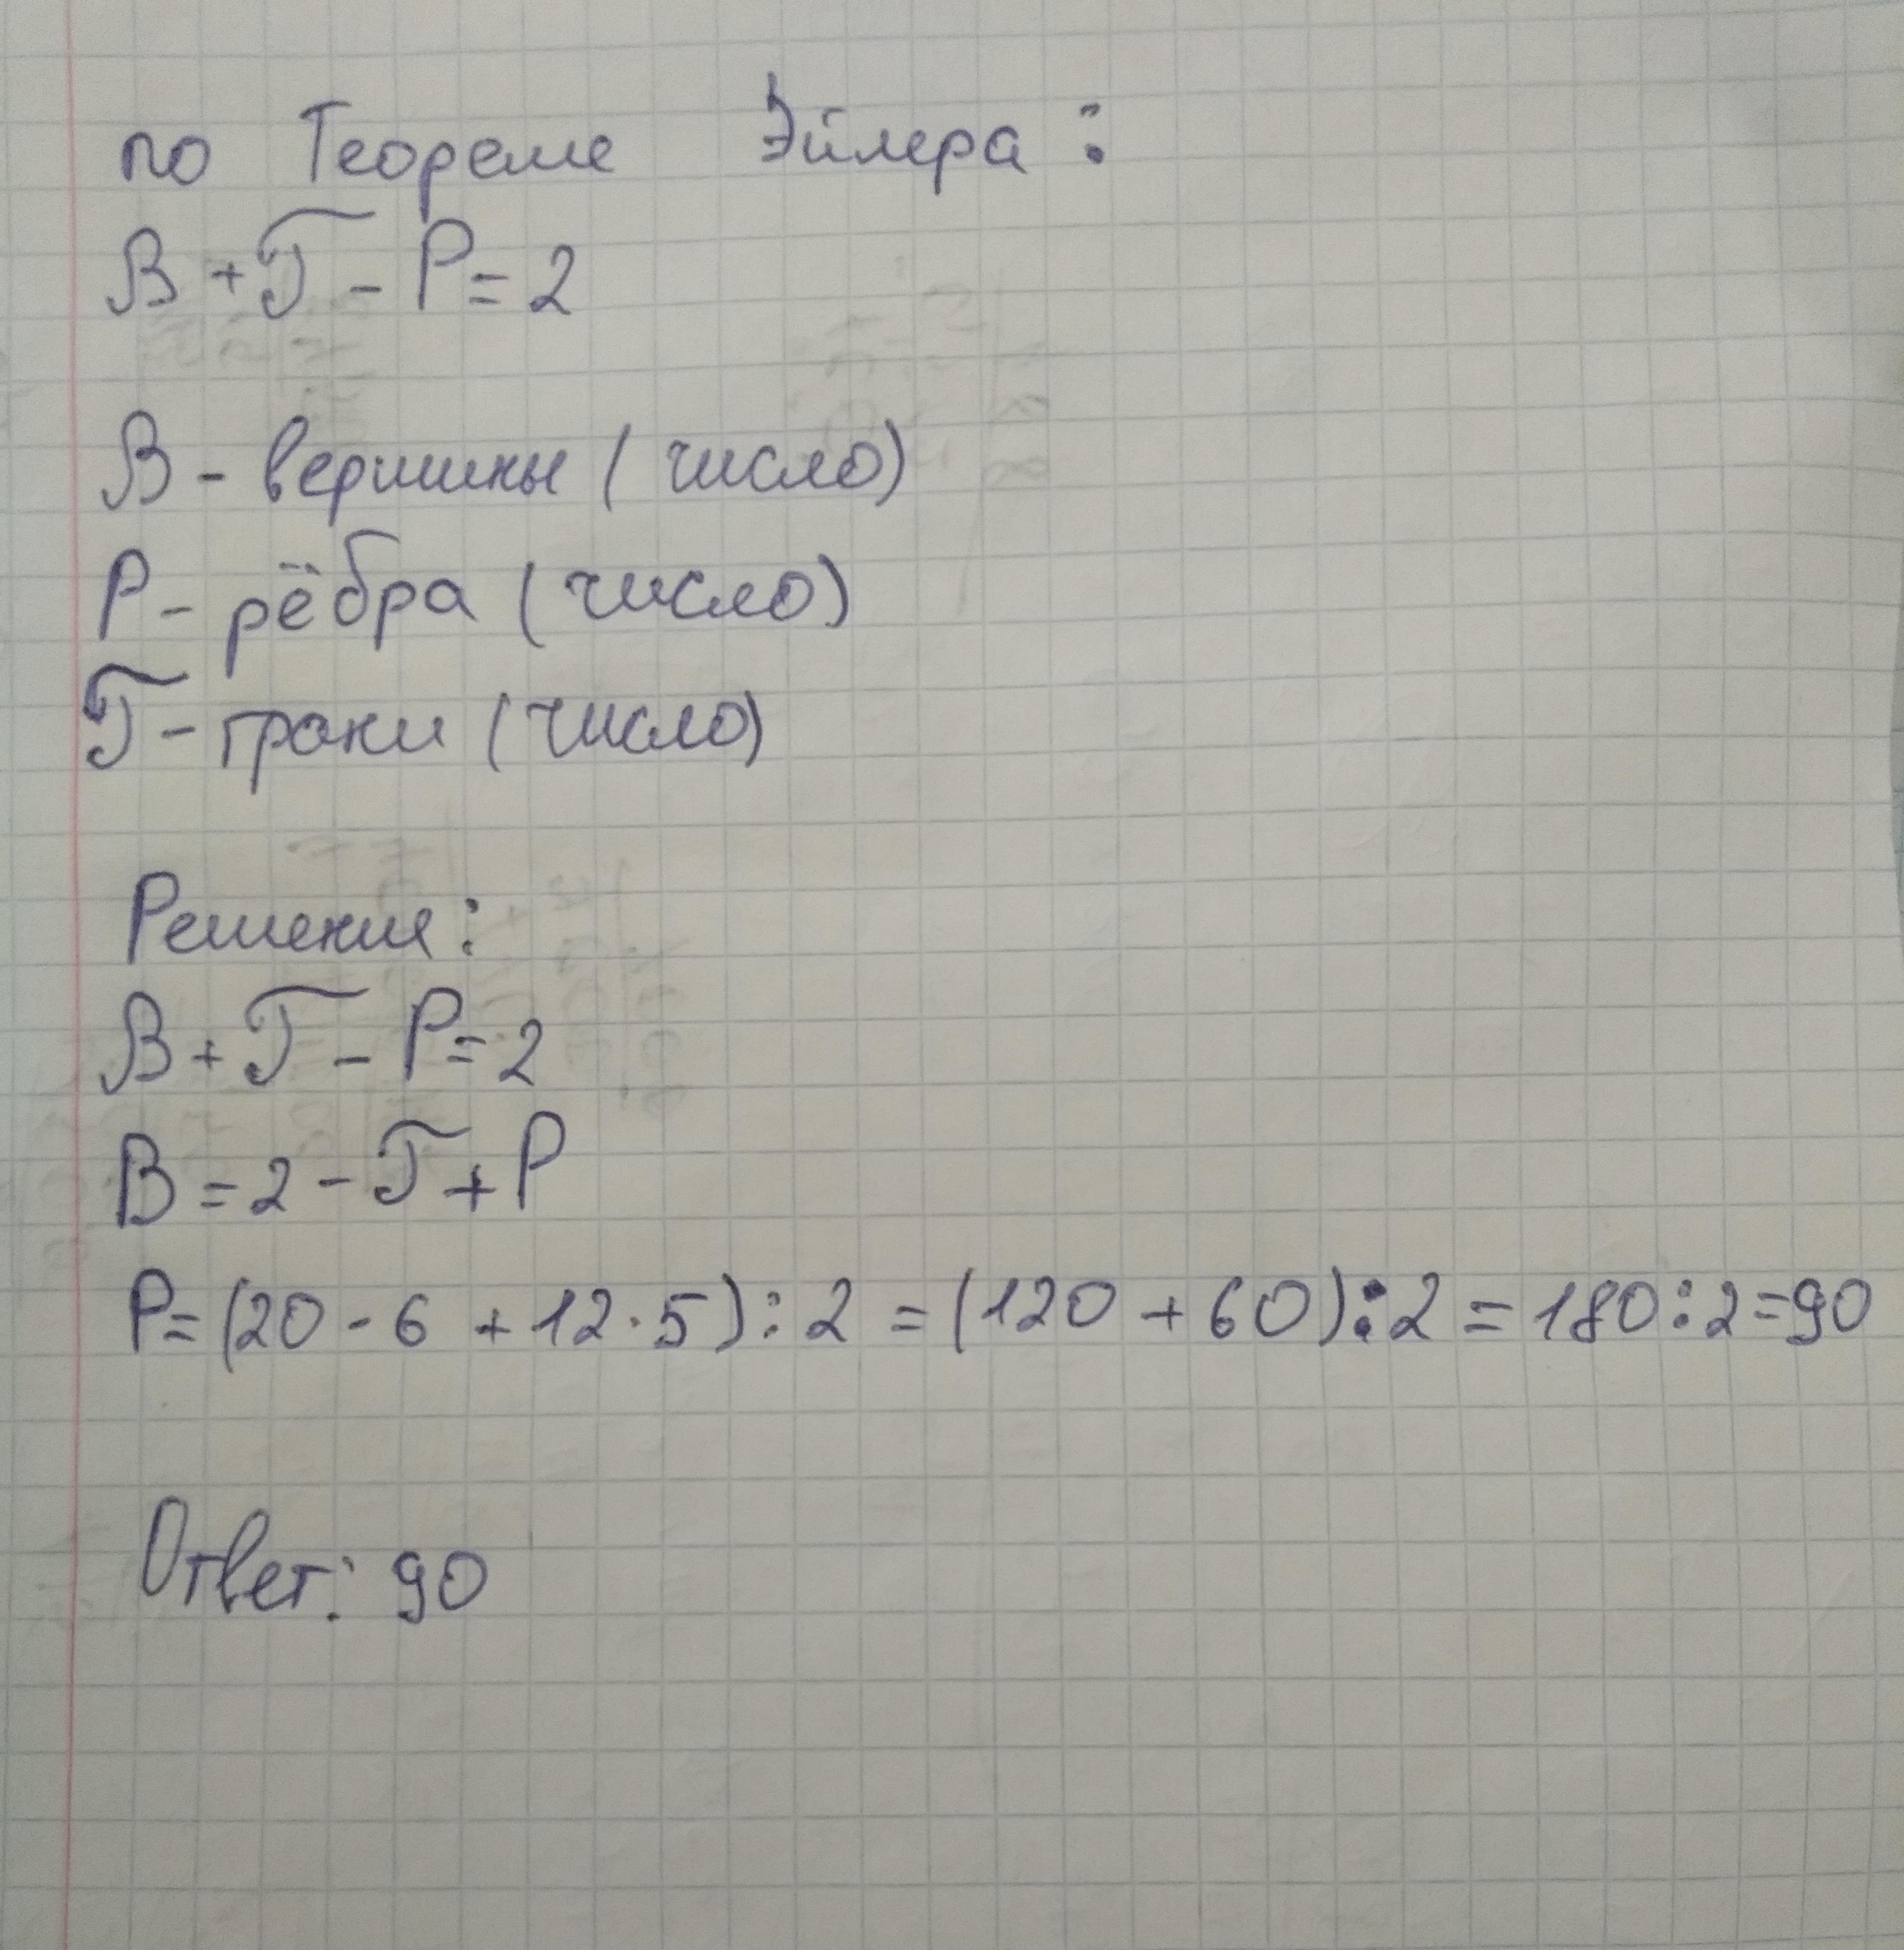 по Теореме Эйлера:
В + Г - Р = 2
В - вершины (число)
Р - рёбра (число)
Г - грани (число)
Решение:
В + Г - Р = 2
В = 2 - Г + Р
Р = (20 - 6 + 12 · 5) : 2 = (120 + 60) : 2 = 180 : 2 = 90
Ответ: 90